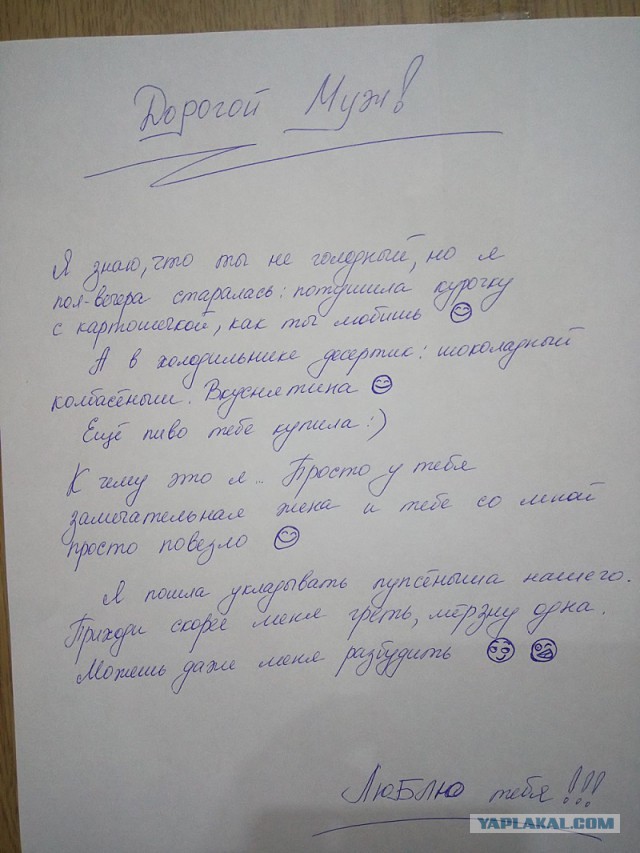 Дорогой Муж!
Я знаю, что ты не голодный, но я
пол-вечера старалась: потушила курочку
с картошечкой, как ты любишь 😊
А в холодильнике десертик: шоколадный
колбасёныш. Вкуснятина 😊
Ещё пиво тебе купила :)
К чему это я... Просто у тебя
замечательная жена и тебе со мной
просто повезло 😊
Я пошла укладывать пупсёныша нашего.
Приходи скорее меня греть, мёрзну одна.
Можешь даже меня разбудить 😏 😜
Люблю тебя!!!
YAPLAKAL.COM